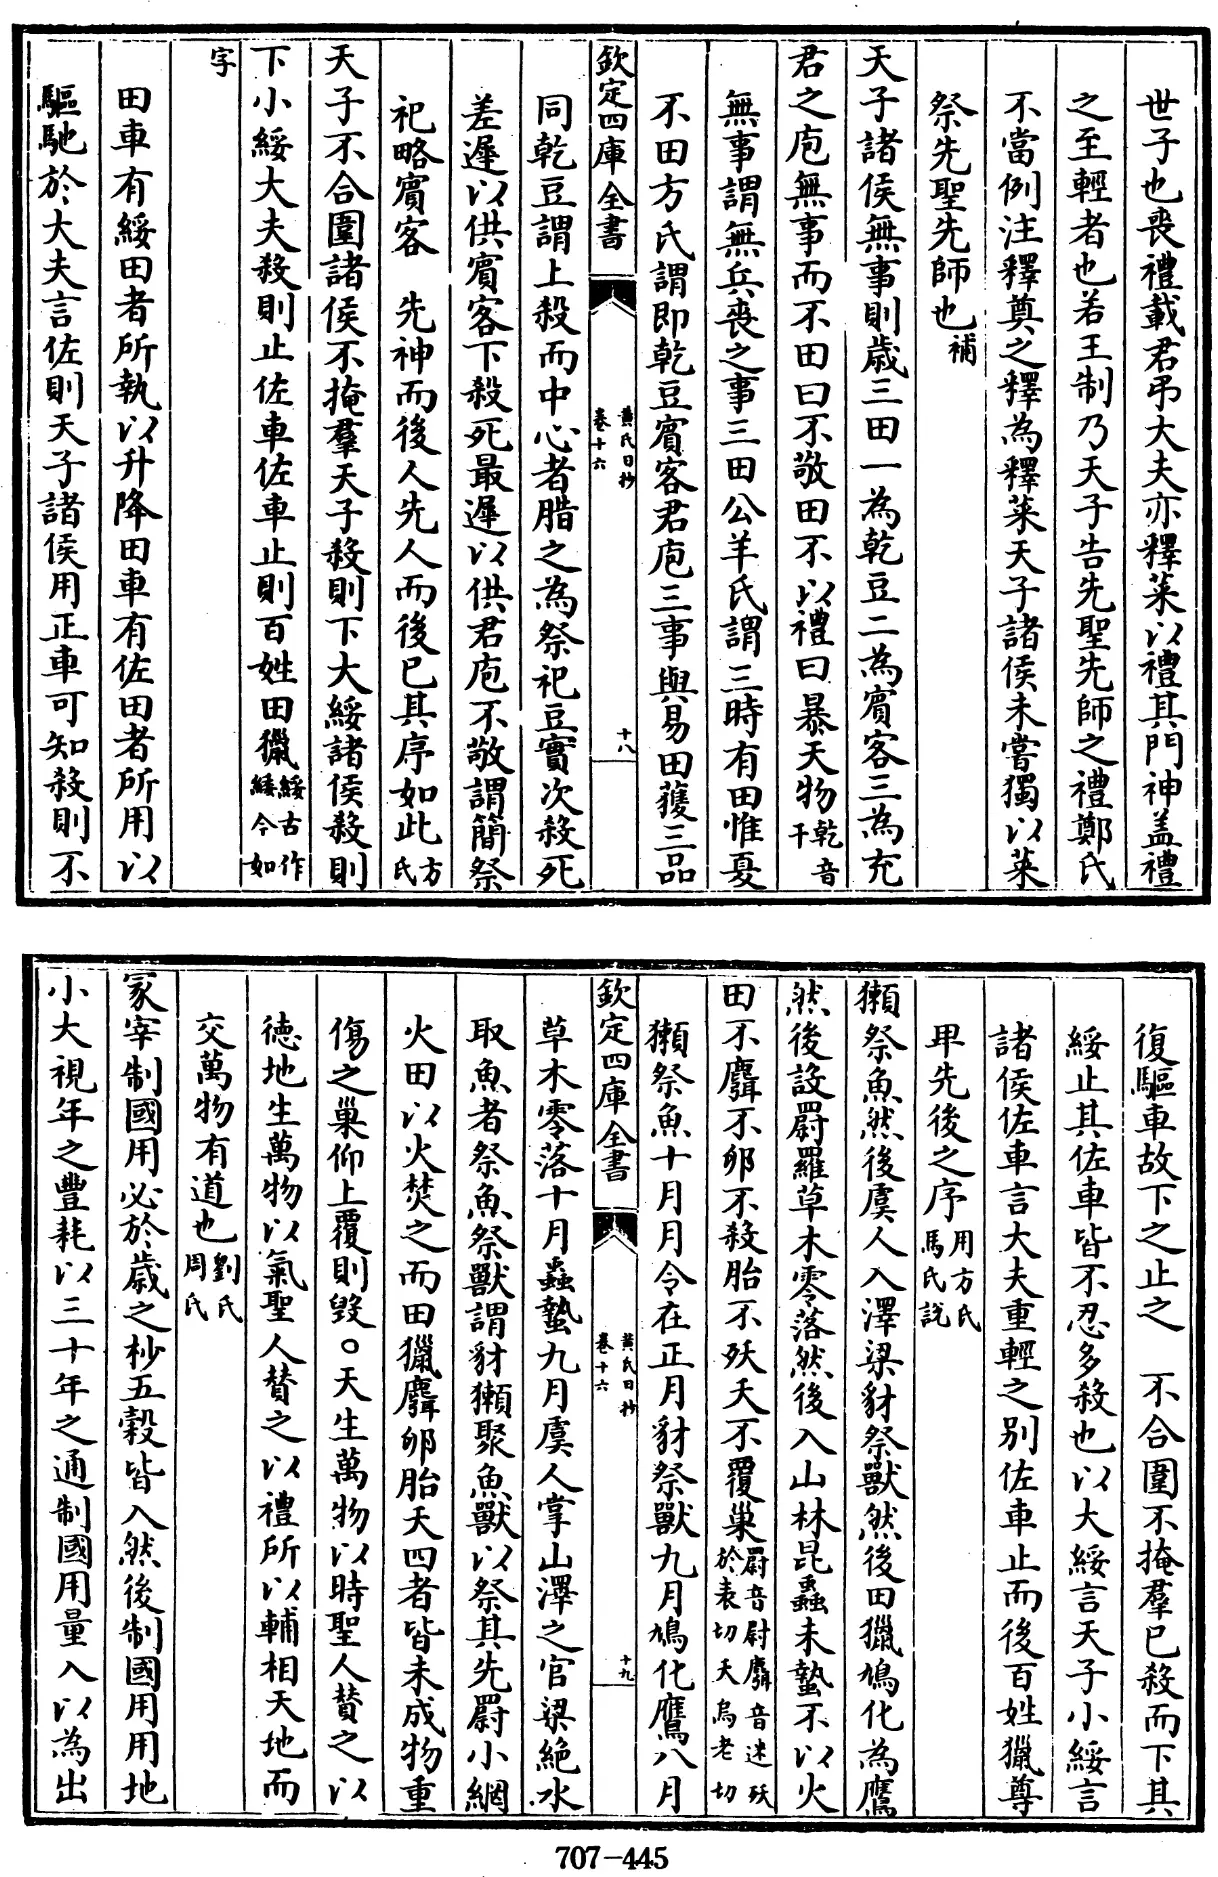 世子也喪禮載君弔大夫亦釋菜以禮其門神盖禮
之至輕者也若王制乃天子告先聖先師之禮鄭氏
不當例注釋奠之釋為釋菜天子諸侯未嘗獨以菜
祭先聖先師也補
天子諸侯無事則歲三田一為乾豆二為賓客三為充
君之庖無事而不田曰不敬田不以禮曰暴天物乾音干
無事謂無兵喪之事三田公羊氏謂三時有田惟夏
不田方氏謂即乾豆賓客君庖三事與易田獲三品
欽定四庫全書
黃氏日抄
卷十六
十八
同乾豆謂上殺而中心者腊之為祭祀豆實次殺死
差遲以供賓客下殺死最遲以供君庖不敬謂簡祭
祀略賓客　先神而後人先人而後已其序如此方氏
天子不合圍諸侯不掩羣天子殺則下大綏諸侯殺則
下小綏大夫殺則止佐車佐車止則百姓田獵綏古作緌今如
字
田車有綏田者所執以升降田車有佐田者所用以
驅馳於大夫言佐則天子諸侯用正車可知殺則不
復驅車故下之止之　不合圍不掩羣已殺而下其
綏止其佐車皆不忍多殺也以大綏言天子小綏言
諸侯佐車言大夫重輕之别佐車止而後百姓獵尊
卑先後之序用方氏馬氏說
獺祭魚然後虞人入澤梁豺祭獸然後田獵鳩化為鷹
然後設罻羅草木零落然後入山林昆蟲未蟄不以火
田不麛不卵不殺胎不殀夭不覆巢罻音尉麛音迷殀於表切夭烏老切
獺祭魚十月月令在正月豺祭獸九月鳩化鷹八月
欽定四庫全書
黃氏日抄
卷十六
十九
草木零落十月蟲蟄九月虞人掌山澤之官梁絶水
取魚者祭魚祭獸謂豺獺聚魚獸以祭其先罻小網
火田以火焚之而田獵麛卵胎夭四者皆未成物重
傷之巢仰上覆則毁○天生萬物以時聖人贊之以
徳地生萬物以氣聖人贊之以禮所以輔相天地而
交萬物有道也劉氏周氏
冡宰制國用必於歳之杪五穀皆入然後制國用用地
小大視年之豐耗以三十年之通制國用量入以為出
707-445